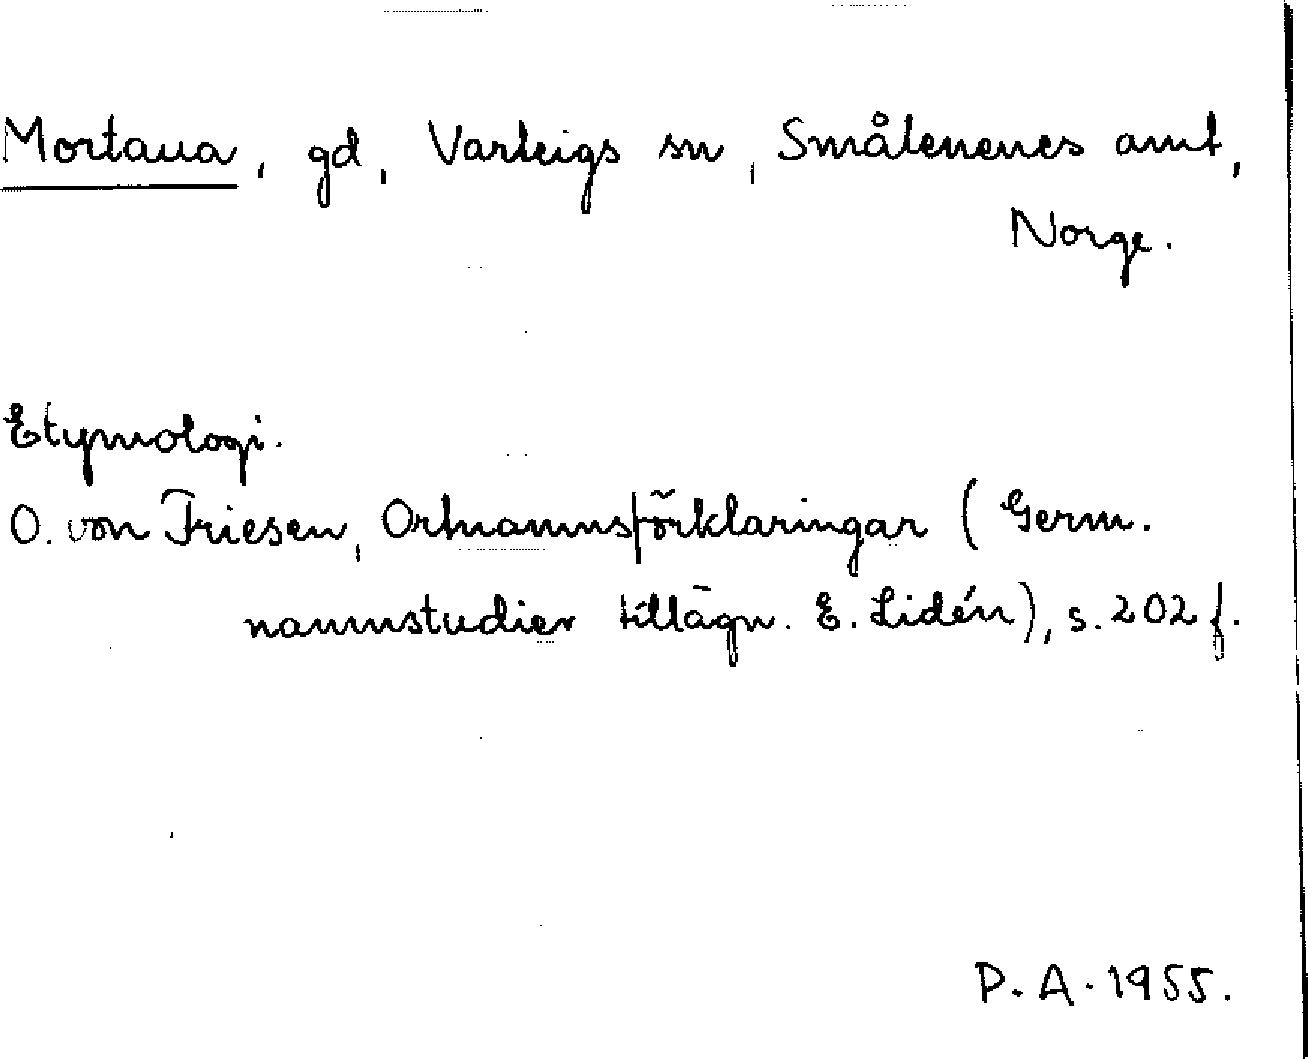 Mortaua, gd, Varteigs sn, Smålenenes amt,
Norge.
Etymologi.
O. von Friesen, Ortnamnsförklaringar (Germ.
namnstudier tillägn. E. Lidén), s. 202 f.
P. A. 1955.